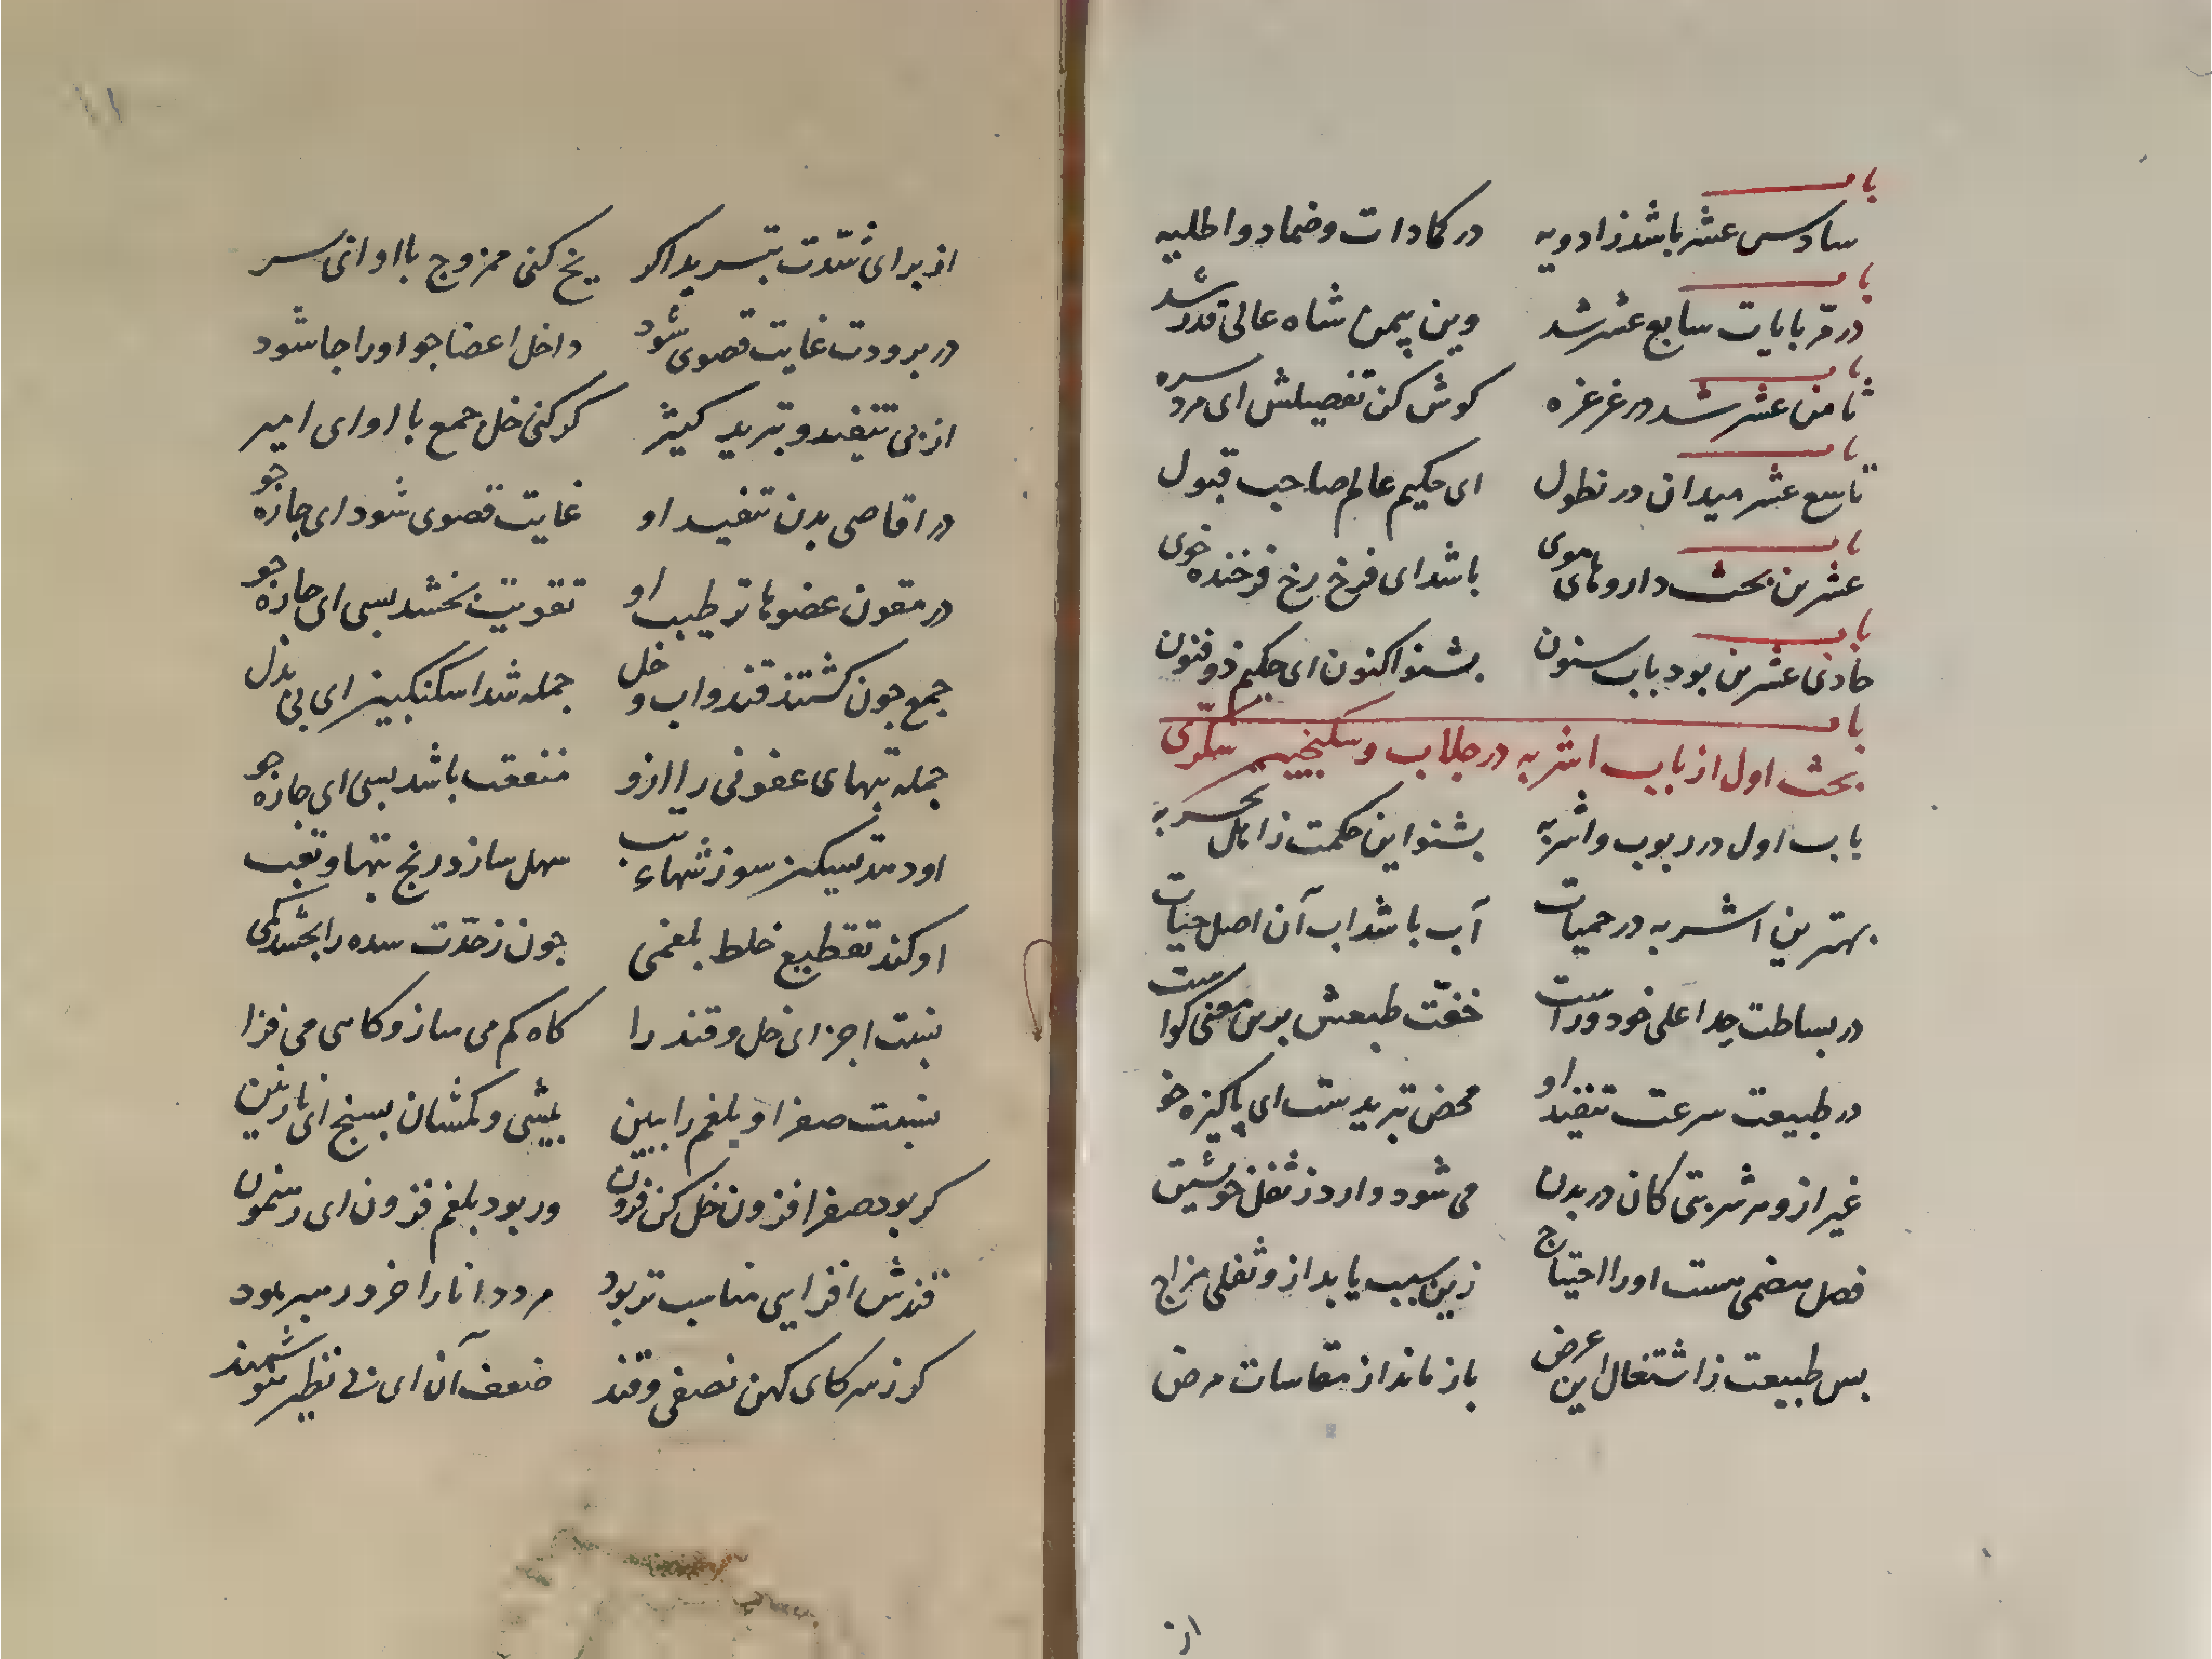 باب
سادس عشر باشد ز ادویه در کمادات و ضماد و اطلیه
باب
در مربایات سابع عشر شد وین پیمن شاه عالی قدر شد
باب
ثامن عشر شد در غرغره کوش کن تفصیلش ای مرد سره
باب
تاسع عشر میدان در نطول ای حکیم عالم صاحب قبول
باب
عشرین بحث داروهای موی باشد ای فرخ رخ فرخنده خوی
باب
حادی عشرین بود باب سنون بشنو اکنون ای حکیم ذوفنون
باب
بحث اول از باب اشربه در جلاب و سکنجبین سکّری
باب اول در ربوب و اشربه بشنو این حکمت ز اهل تجربه
بهترین اشربه در حمیات آب باشد اب آن اصل حیات
در بساطت حد اعلی خود وراست خفّت طبعش برین معنی کواست
در طبیعت سرعت تنفید او محض تبریدست ای پاکیزه خو
غیر ازو هر شربتی کان در بدن می شود وارد ز ثفل خویشتن
فصل هضمی هست اورا احتیاج زین سبب یابد ازو ثقلی مزاج
بس طبیعت ز اشتغال این عرض باز ماند از مقاسات مرض
از
۱۱
از برای شدّت تبرید اکر یخ کنی ممزوج با او انی سر
در برودت غایت قصوی شود داخل اعضا جو اورا جا شود
از پی تنفید و تبرید کثیر کر کنی خل جمع با او ای امیر
در اقاصی بدن تنفید او غایت قصوی شود ای جاره جو
در مقون عضوها ترطیب او تقویت بخشد بسی ای جاره جو
جمع جون کشتند قند و اب و خل جمله شد اسکنکبین ای بی بدل
جمله تبهای عفونی را ازو منفعت باشد بسی ای جاره جو
او دهد تسکین سوزشهاء تب سهل سازد رنج تبها و تعب
او کند تقطیع خلط بلغمی جون ز حدّت سده را بخشد کمی
نسبت اجزای خل و قند را کاه کم می ساز و کاهی می فزا
نسبت صفرا و بلغم را ببین بیشی و کمشان بسنج ای نازنین
کر بود صفرا فزون خل کن فزون ور بود بلغم فزون ای رهنمون
قندش افزایی مناسب تر بود مرد دانا را خرد رهبر بود
کوز سرکای کهن نصفی و قند ضعف آن ای بی نظیر هوشمند